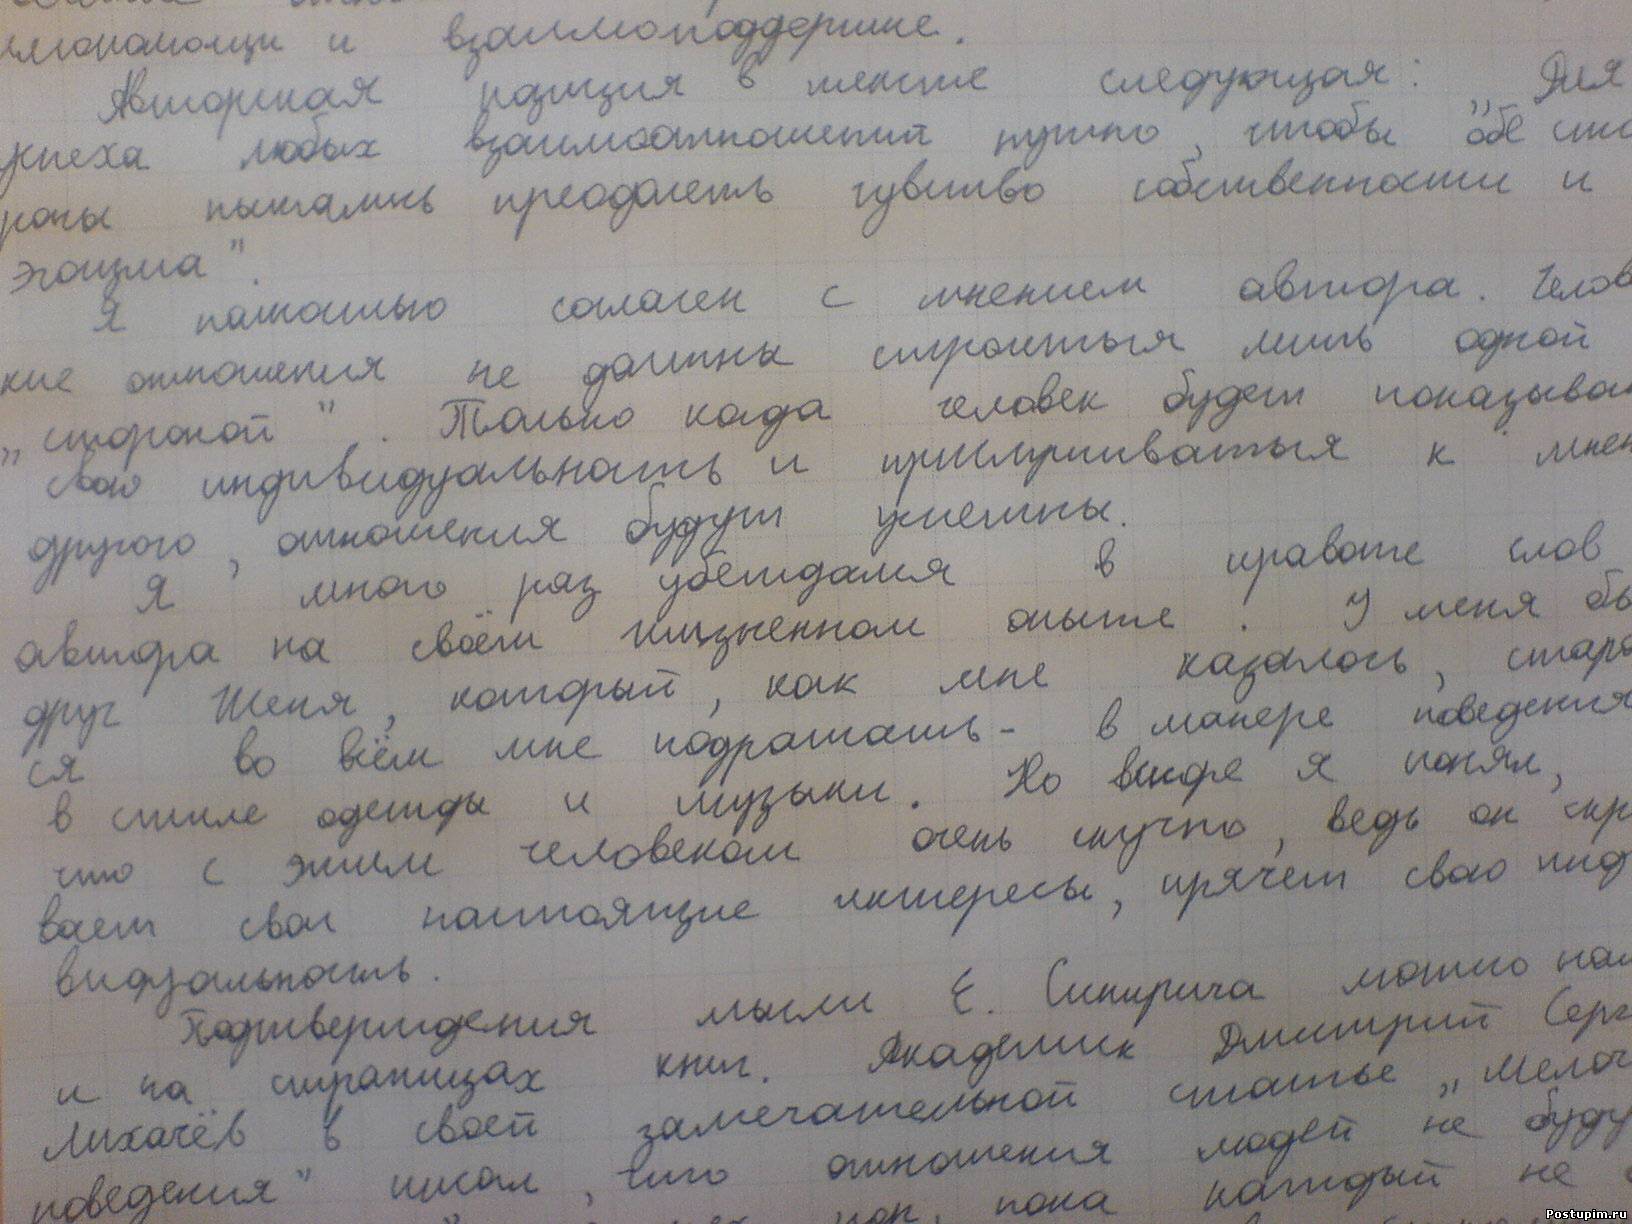 имопомощи и взаимоподдержке.
Авторская позиция в тексте следующая: „Для
успеха любых взаимоотношений нужно, чтобы обе сто
роны пытались преодолеть чувство собственности и
эгоизма".
Я полностью согласен с мнением автора. Челове
кие отношения не должны строиться лишь одной
„стороной". Только когда человек будет показыват
свою индивидуальность и прислушиваться к мнен
другого, отношения будут успешны.
Я много раз убеждался в правоте слов
автора на своём жизненном опыте. У меня бы
друг Женя, который, как мне казалось, старa
ся во всём мне подражать - в манере поведения
в стиле одежды и музыки. Но вскоре я понял,
что с этим человеком очень скучно, ведь он скр
вает свои настоящие интересы, прячет свою инд
видуальность.
Подтверждения мысли Е. можно най
и на страницах книг. Академик Дмитрий Серг
Лихачёв в своей замечательной статье „Мелоч
поведения" писал, что отношения людей не буду
пор, пока каждый не
Postupim.ru